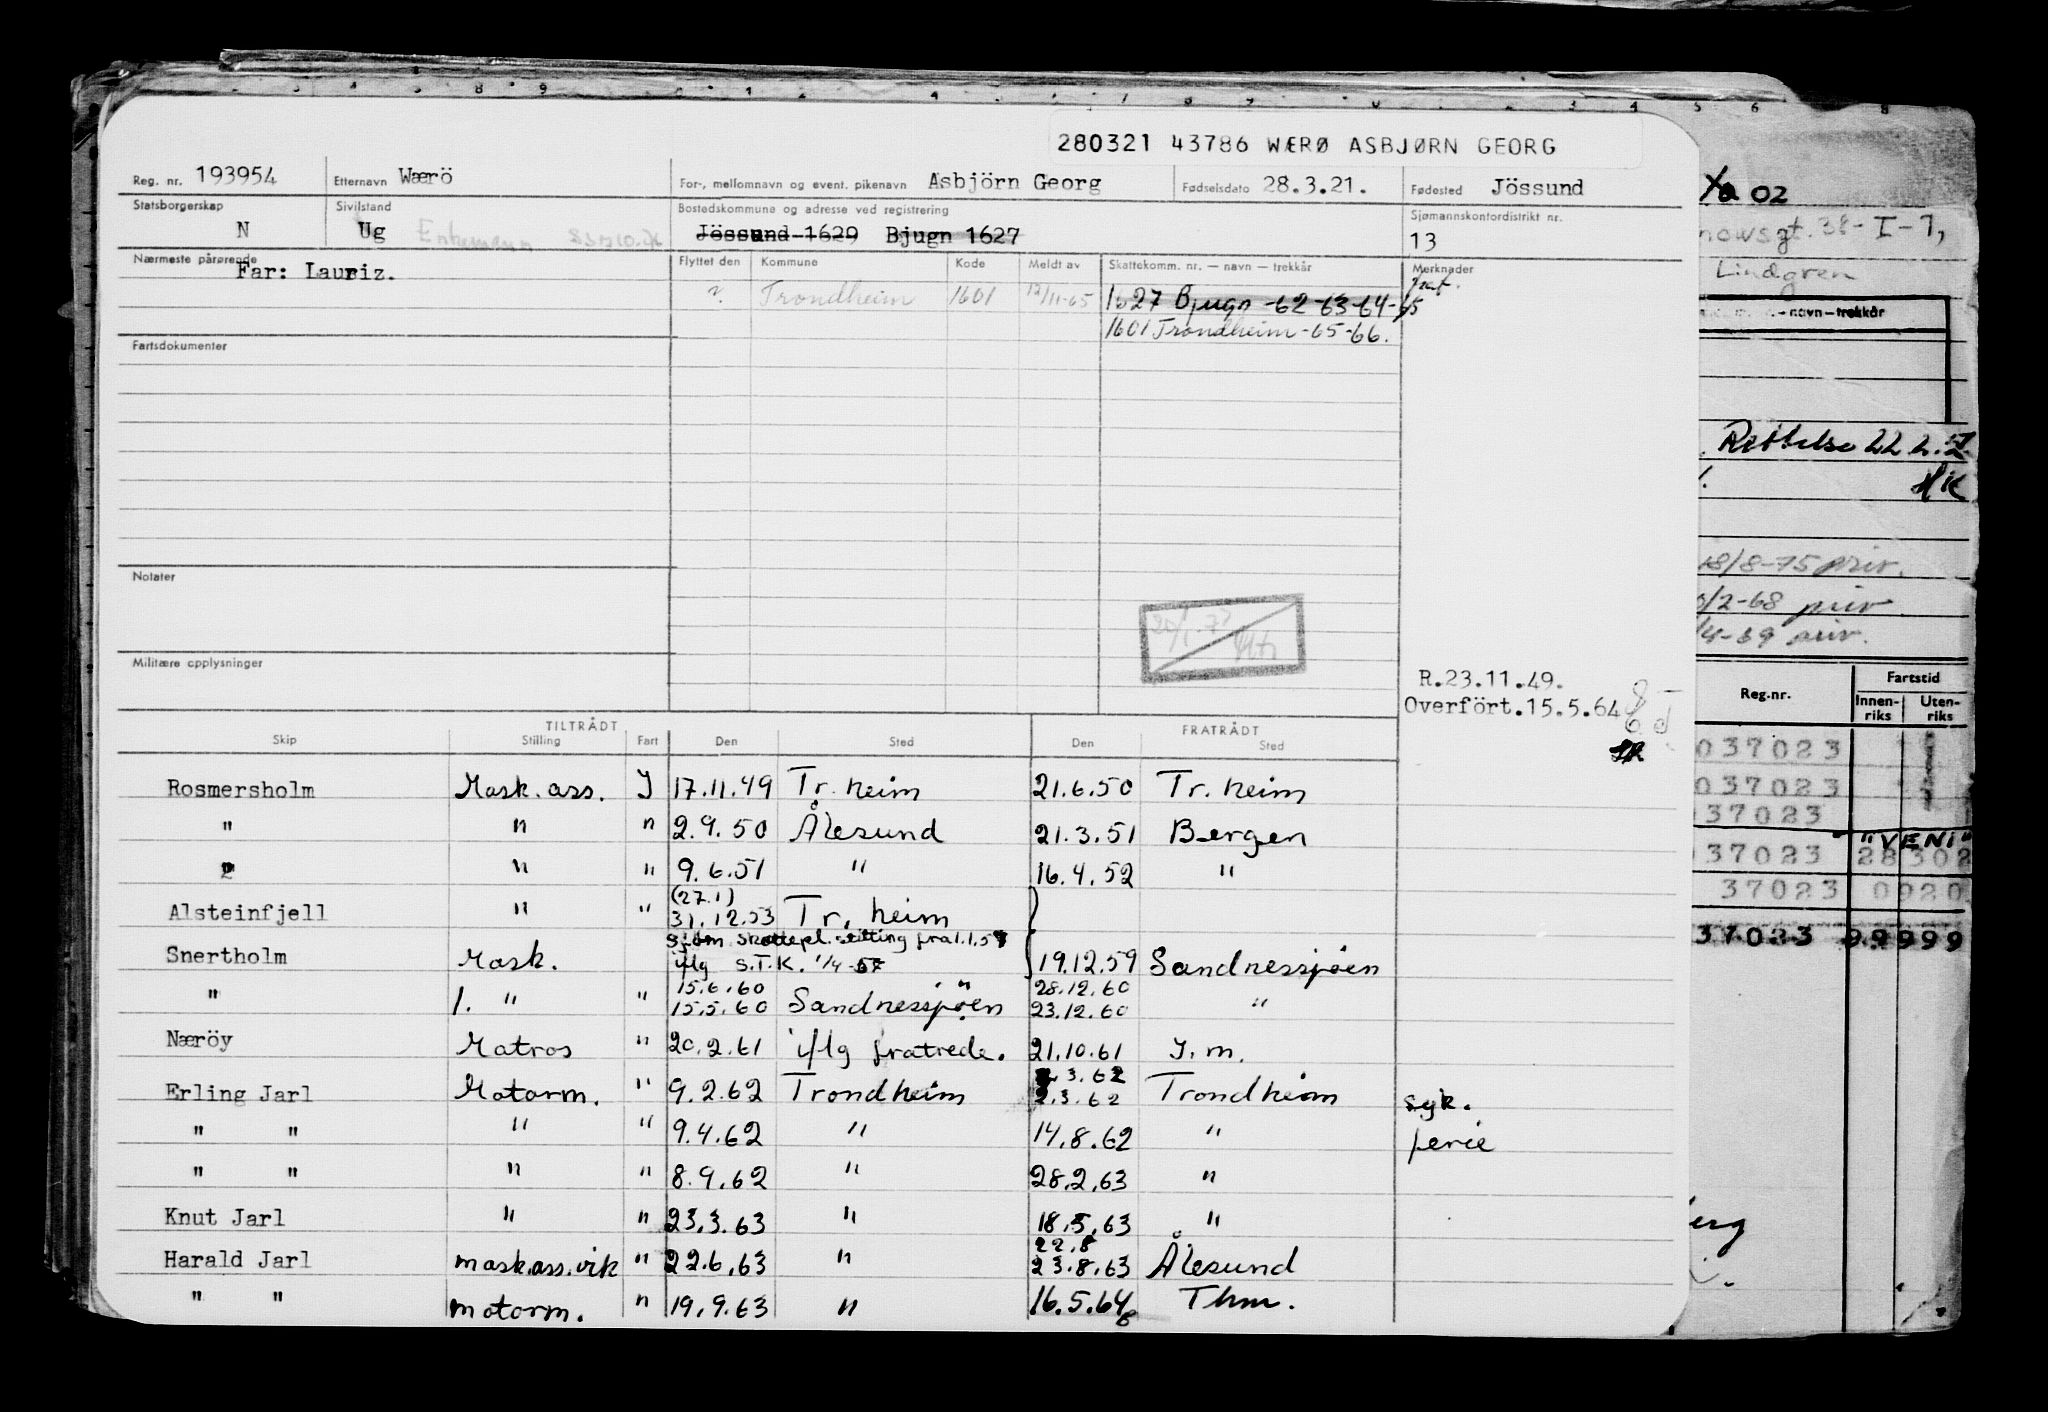 280321 43786 WÆRØ ASBJØRN GEORG
Reg. nr. 193954 Etternavn Wærö For-, mellomnavn og event. pikenavn Asbjörn Georg Fødselsdato 28.3.21. Fødested Jössund
Statsborgerskap N Sivilstand Ug Bostedskommune og adresse ved registrering Jössund 1629 Bjugn 1627 Sjømannskontordistrikt nr. 13
Nærmeste pårørende Far: Lauriz. Flyttet den Kommune Kode Meldt av Skattekomm. nr. — navn — trekkår Merknader
?. Trondheim 1601 12/11-65 1627 Bjugn -62-63-64-65
1601 Trondheim -65-66.
Fartsdokumenter
Notater
Militære opplysninger
R.23.11.49.
Overfört.15.5.64
TILTRÅDT FRATRÅDT
Skip Stilling Fart Den Sted Den Sted
Rosmersholm Mask. ass. I 17.11.49 Tr. heim 21.6.50 Tr. heim
" " " 2.9.50 Ålesund 21.3.51 Bergen
" " " 9.6.51 " 16.4.52 "
(27.1)
Alsteinfjell " " 31.12.53 Tr. heim
sjöm. skattepl. stilling fra 1.1.57
Snertholm Mask. iflg S.T.K. 1/4-57 19.12.59 Sandnessjøen
15.6.60 " 28.12.60
" 1. " " 15.5.60 Sandnessjøen 23.12.60 "
Næröy Matros " 20.2.61 iflg fratrede. 21.10.61 I. m.
2.3.62
Erling Jarl Motorm. " 9.2.62 Trondheim 2.3.62 Trondheim syk.
" " " " 9.4.62 " 14.8.62 " ferie
" " " " 8.9.62 " 28.2.63 "
Knut Jarl " " 23.3.63 " 18.5.63 "
22.8
Harald Jarl mask.ass.vik " 22.6.63 " 23.8.63 Ålesund
" " motorm. " 19.9.63 " 16.5.64 Thm.
02
38-I-7,
Lindgren
-navn-trekkår
Rettelse 22.2.
HK
18/8-75 priv.
/2-68 priv
/4-69 priv.
Reg-nr. Fartstid
Innen-riks Uten-riks
037023
037023
37023
"VENI"
37023 28302
37023 0920
37023 99999
erg